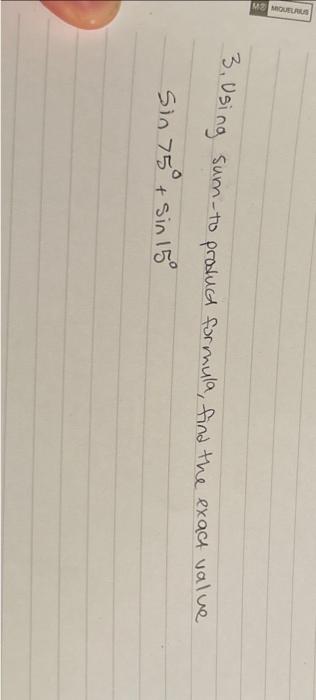 MIQUELRIUS
3. Using sum-to product formula, find the exact value
Sin 75° + Sin 15°